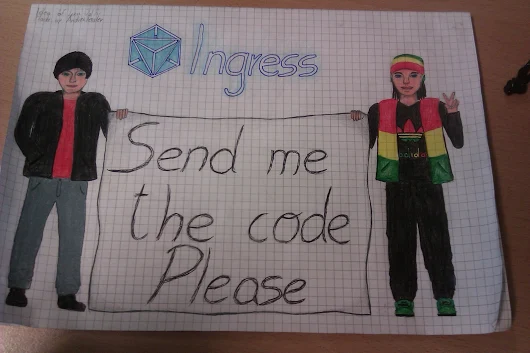 Ingress
Send me
the code
Please